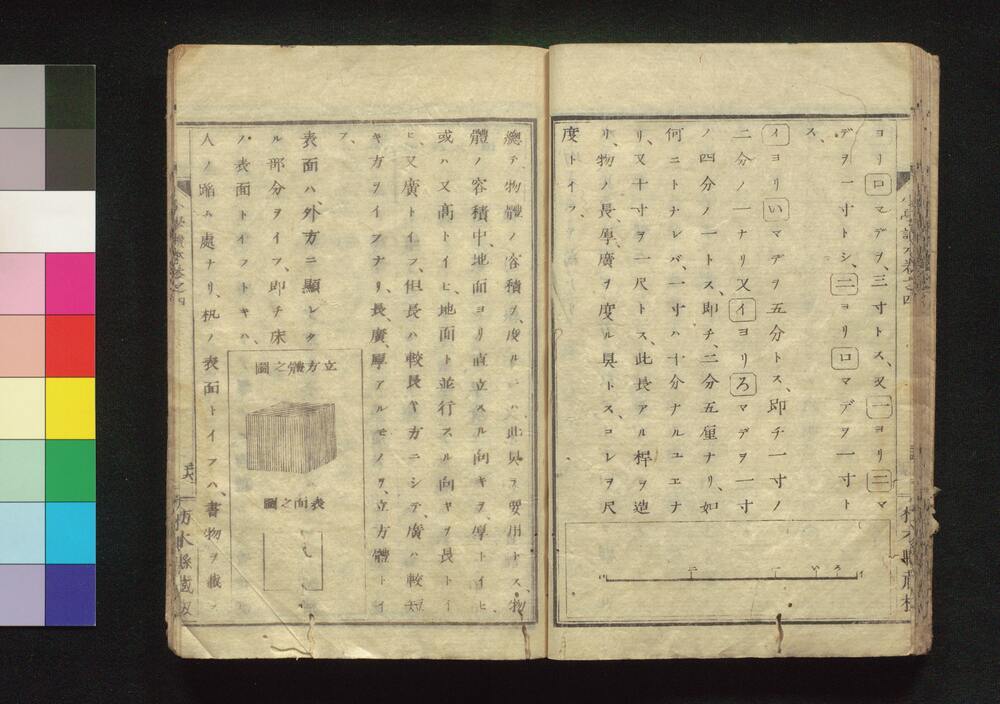 ヨリロマデヲ、三寸トス、又一ヨリ二マ
デヲ一寸トシ、二ヨリロマデヲ一寸ト
ス、
イヨリいマデヲ五分トス、即チ一寸ノ
二分ノ一ナリ又イヨリろマデヲ一寸
ノ四分ノ一トス、即チ、二分五厘ナリ、如
何ニトナレバ、一寸ハ十分ナルユエナ
リ、又十寸ヲ一尺トス、此長アル桿ヲ造
リ、物ノ長、厚、廣ヲ度ル具トス、コレヲ尺
度トイフ、
イ ろ い 一 二 ロ
總テ、物體ノ容積ヲ、度ルニハ、此具ヲ要用トス、物
體ノ容積中、地面ヨリ直立スル向キヲ厚トイヒ、
或ハ又高トイヒ、地面ト並行スル向キヲ長トイ
ヒ、又廣トイフ、但長ハ較長キ方ニシテ、廣ハ較短
キ方ヲイフナリ、長、廣、厚アルモノヲ、立方體トイ
フ、
立方體之圖
表面之圖
表面ハ、外方ニ顯レタ
ル部分ヲイフ、即チ床
ノ表面トイフトキハ、
人ノ踏ム處ナリ、机ノ表面トイフハ、書物ヲ載ス
小學讀本卷之四
栃木縣藏版